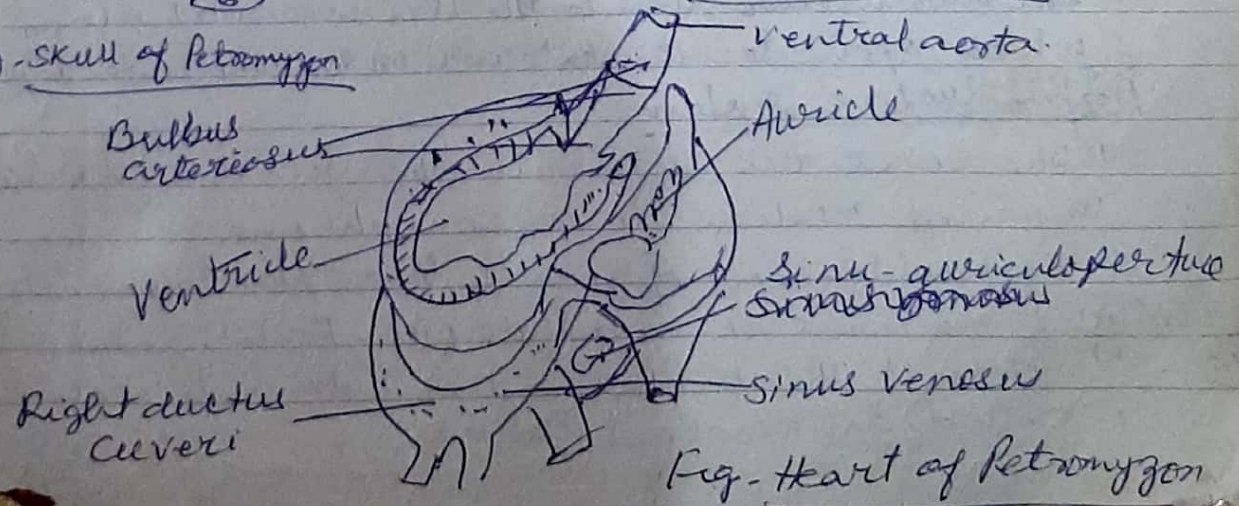 - Skull of Petromyzon
Ventral aorta.
Bulbus
arteriosus
Auricle
Ventricle
Sinu-auriculoperture
Right ductus
Cuveri
Sinus Venosus
Fig- Heart of Petromyzon